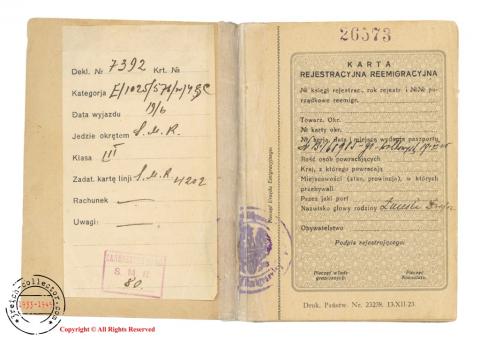 Dekl. № 7392 Krt. №
Kategorja
Data wyjazdu 19/6
Jedzie okrętem S. M. R.
Klasa III
Zadat. kartę linji S. M. R. 4202
Rachunek —
Uwagi: —
S. M.
80.
Pieczęć Urzędu Emigracyjnego.
26573
KARTA
REJESTRACYJNA REEMIGRACYJNA
№ księgi rejestrac., rok rejestr. i №№ po-
rządkowe reemigr.
Towarz. Okr.
№ karty okr.
№ serja, data i miejsce wydania paszportu
Ilość osób powracających
Kraj, z którego powracają
Miejscowości (stan, prowincja), w których
przebywali
Przez jaki port
Nazwisko głowy rodziny
Obywatelstwo
Podpis rejestrującego:
Pieczęć władz
granicznych:
Pieczęć
Konsulatu.
Druk. Państw. Nr. 23278. 13.XII-23.
3reich-collector.com
1933-1945
Copyright © All Rights Reserved